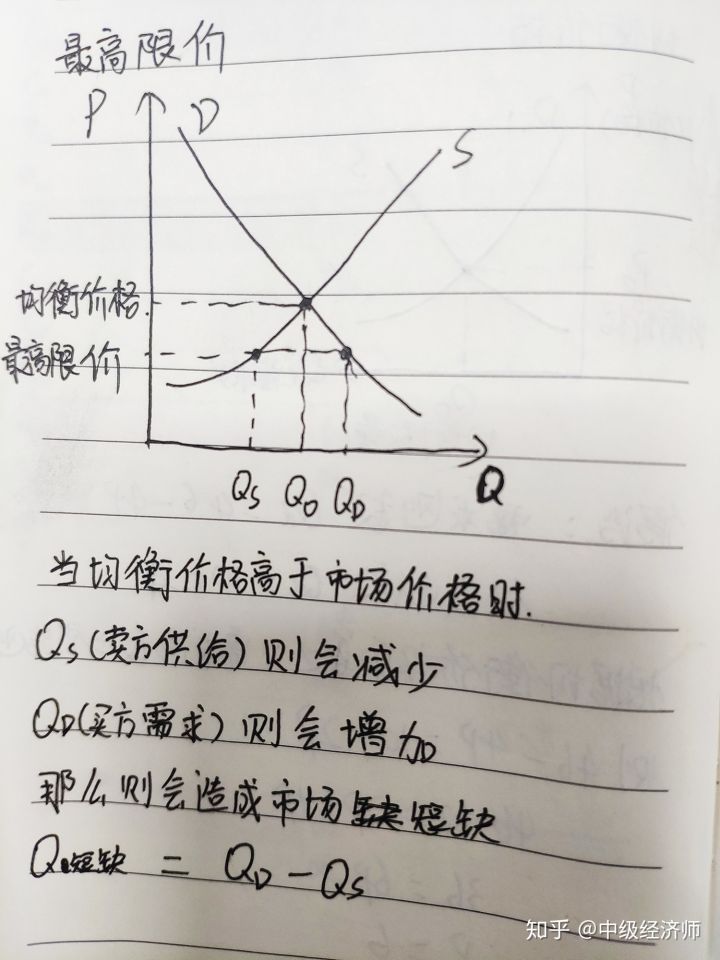 最高限价
P D
S
均衡价格
最高限价
Qs Q0 QD
Q
当均衡价格高于市场价格时.
Qs(卖方供给)则会减少
QD(买方需求)则会增加
那么则会造成市场短缺
Q短缺 = QD - Qs
知乎 @中级经济师